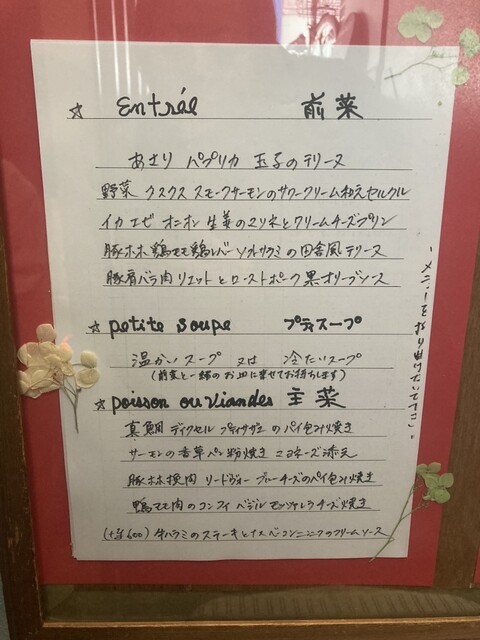 ☆ Entrée 前菜
あさり パプリカ 玉子のテリーヌ
野菜 クスクス スモークサーモンのサワークリーム和えセルクル
イカ エビ オニオン 生姜のマリネとクリームチーズプリン
豚ホホ 鶏モモ 鶏レバー ソフトサラミの田舎風テリーヌ
豚肩バラ肉 リエットとローストポーク黒オリーブソース
☆ petite soupe プティスープ
温かいスープ 又は 冷たいスープ
(前菜と一緒のお皿に乗せてお持ちします)
☆ poisson ou viandes 主菜
真鯛 ディクセル のパイ包み焼き
サーモンの香草パン粉焼き マヨネーズ添え
豚ホホ挽肉 リードヴォー ブルーチーズのパイ包み焼き
鴨モモ肉のコンフィ バジル モッツァレラチーズ焼き
(+¥600) 牛ハラミのステーキとナス ベーコン ニンニクのクリームソース